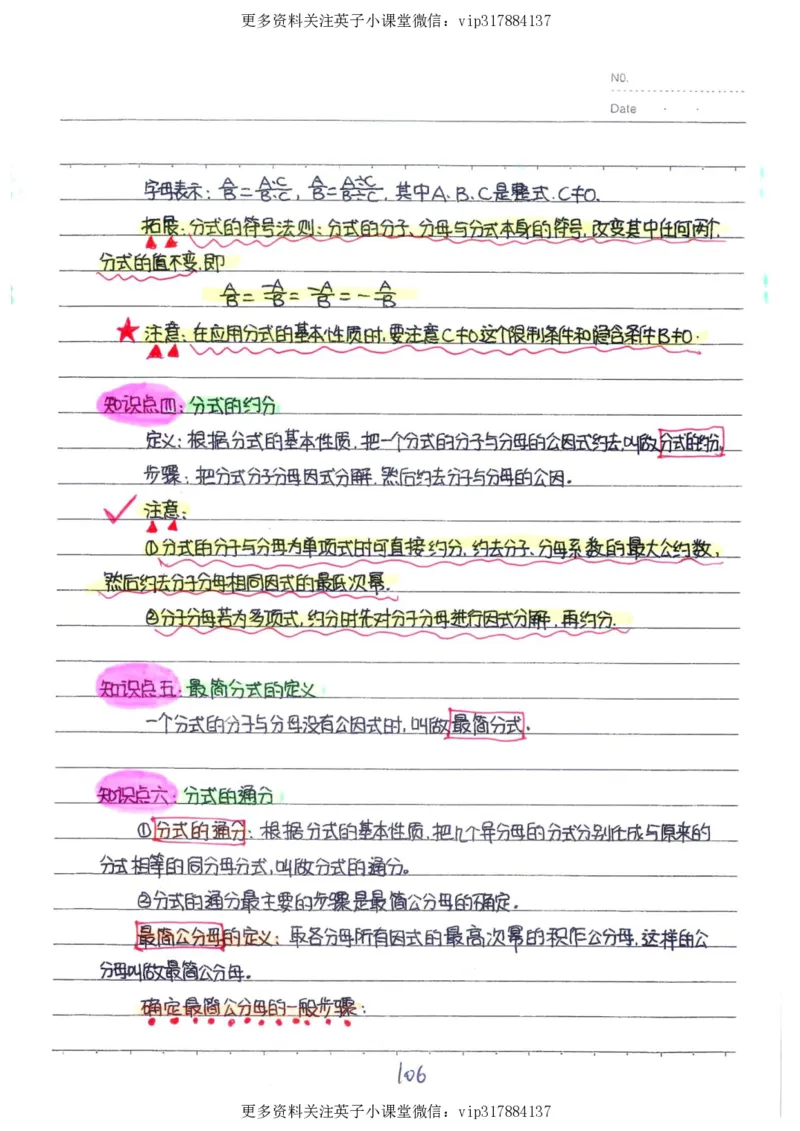 更多资料关注英子小课堂微信：vip317884137
NO.
Date
字母表示：A/B=A·C/B·C，A/B=A÷C/B÷C，其中A、B、C是整式，C≠0.
拓展：分式的符号法则：分式的分子、分母与分式本身的符号，改变其中任何两个，
分式的值不变，即
A/B=-A/-B=-A/B=-A/B
注意：在应用分式的基本性质时，要注意C≠0这个限制条件和隐含条件B≠0.
知识点四：分式的约分
定义：根据分式的基本性质，把一个分式的分子与分母的公因式约去，叫做分式的约分.
步骤：把分式分子分母因式分解，然后约去分子与分母的公因。
注意：
①分式的分子与分母为单项式时可直接约分，约去分子、分母系数的最大公约数，
然后约去分子分母相同因式的最低次幂.
②分子分母若为多项式，约分时先对分子分母进行因式分解，再约分.
知识点五：最简分式的定义
一个分式的分子与分母没有公因式时，叫做最简分式.
知识点六：分式的通分
①分式的通分：根据分式的基本性质，把几个异分母的分式分别化成与原来的
分式相等的同分母分式，叫做分式的通分。
②分式的通分最主要的步骤是最简公分母的确定.
最简公分母的定义：取各分母所有因式的最高次幂的积作公分母，这样的公
分母叫做最简公分母.
确定最简公分母的一般步骤：
106
更多资料关注英子小课堂微信：vip317884137